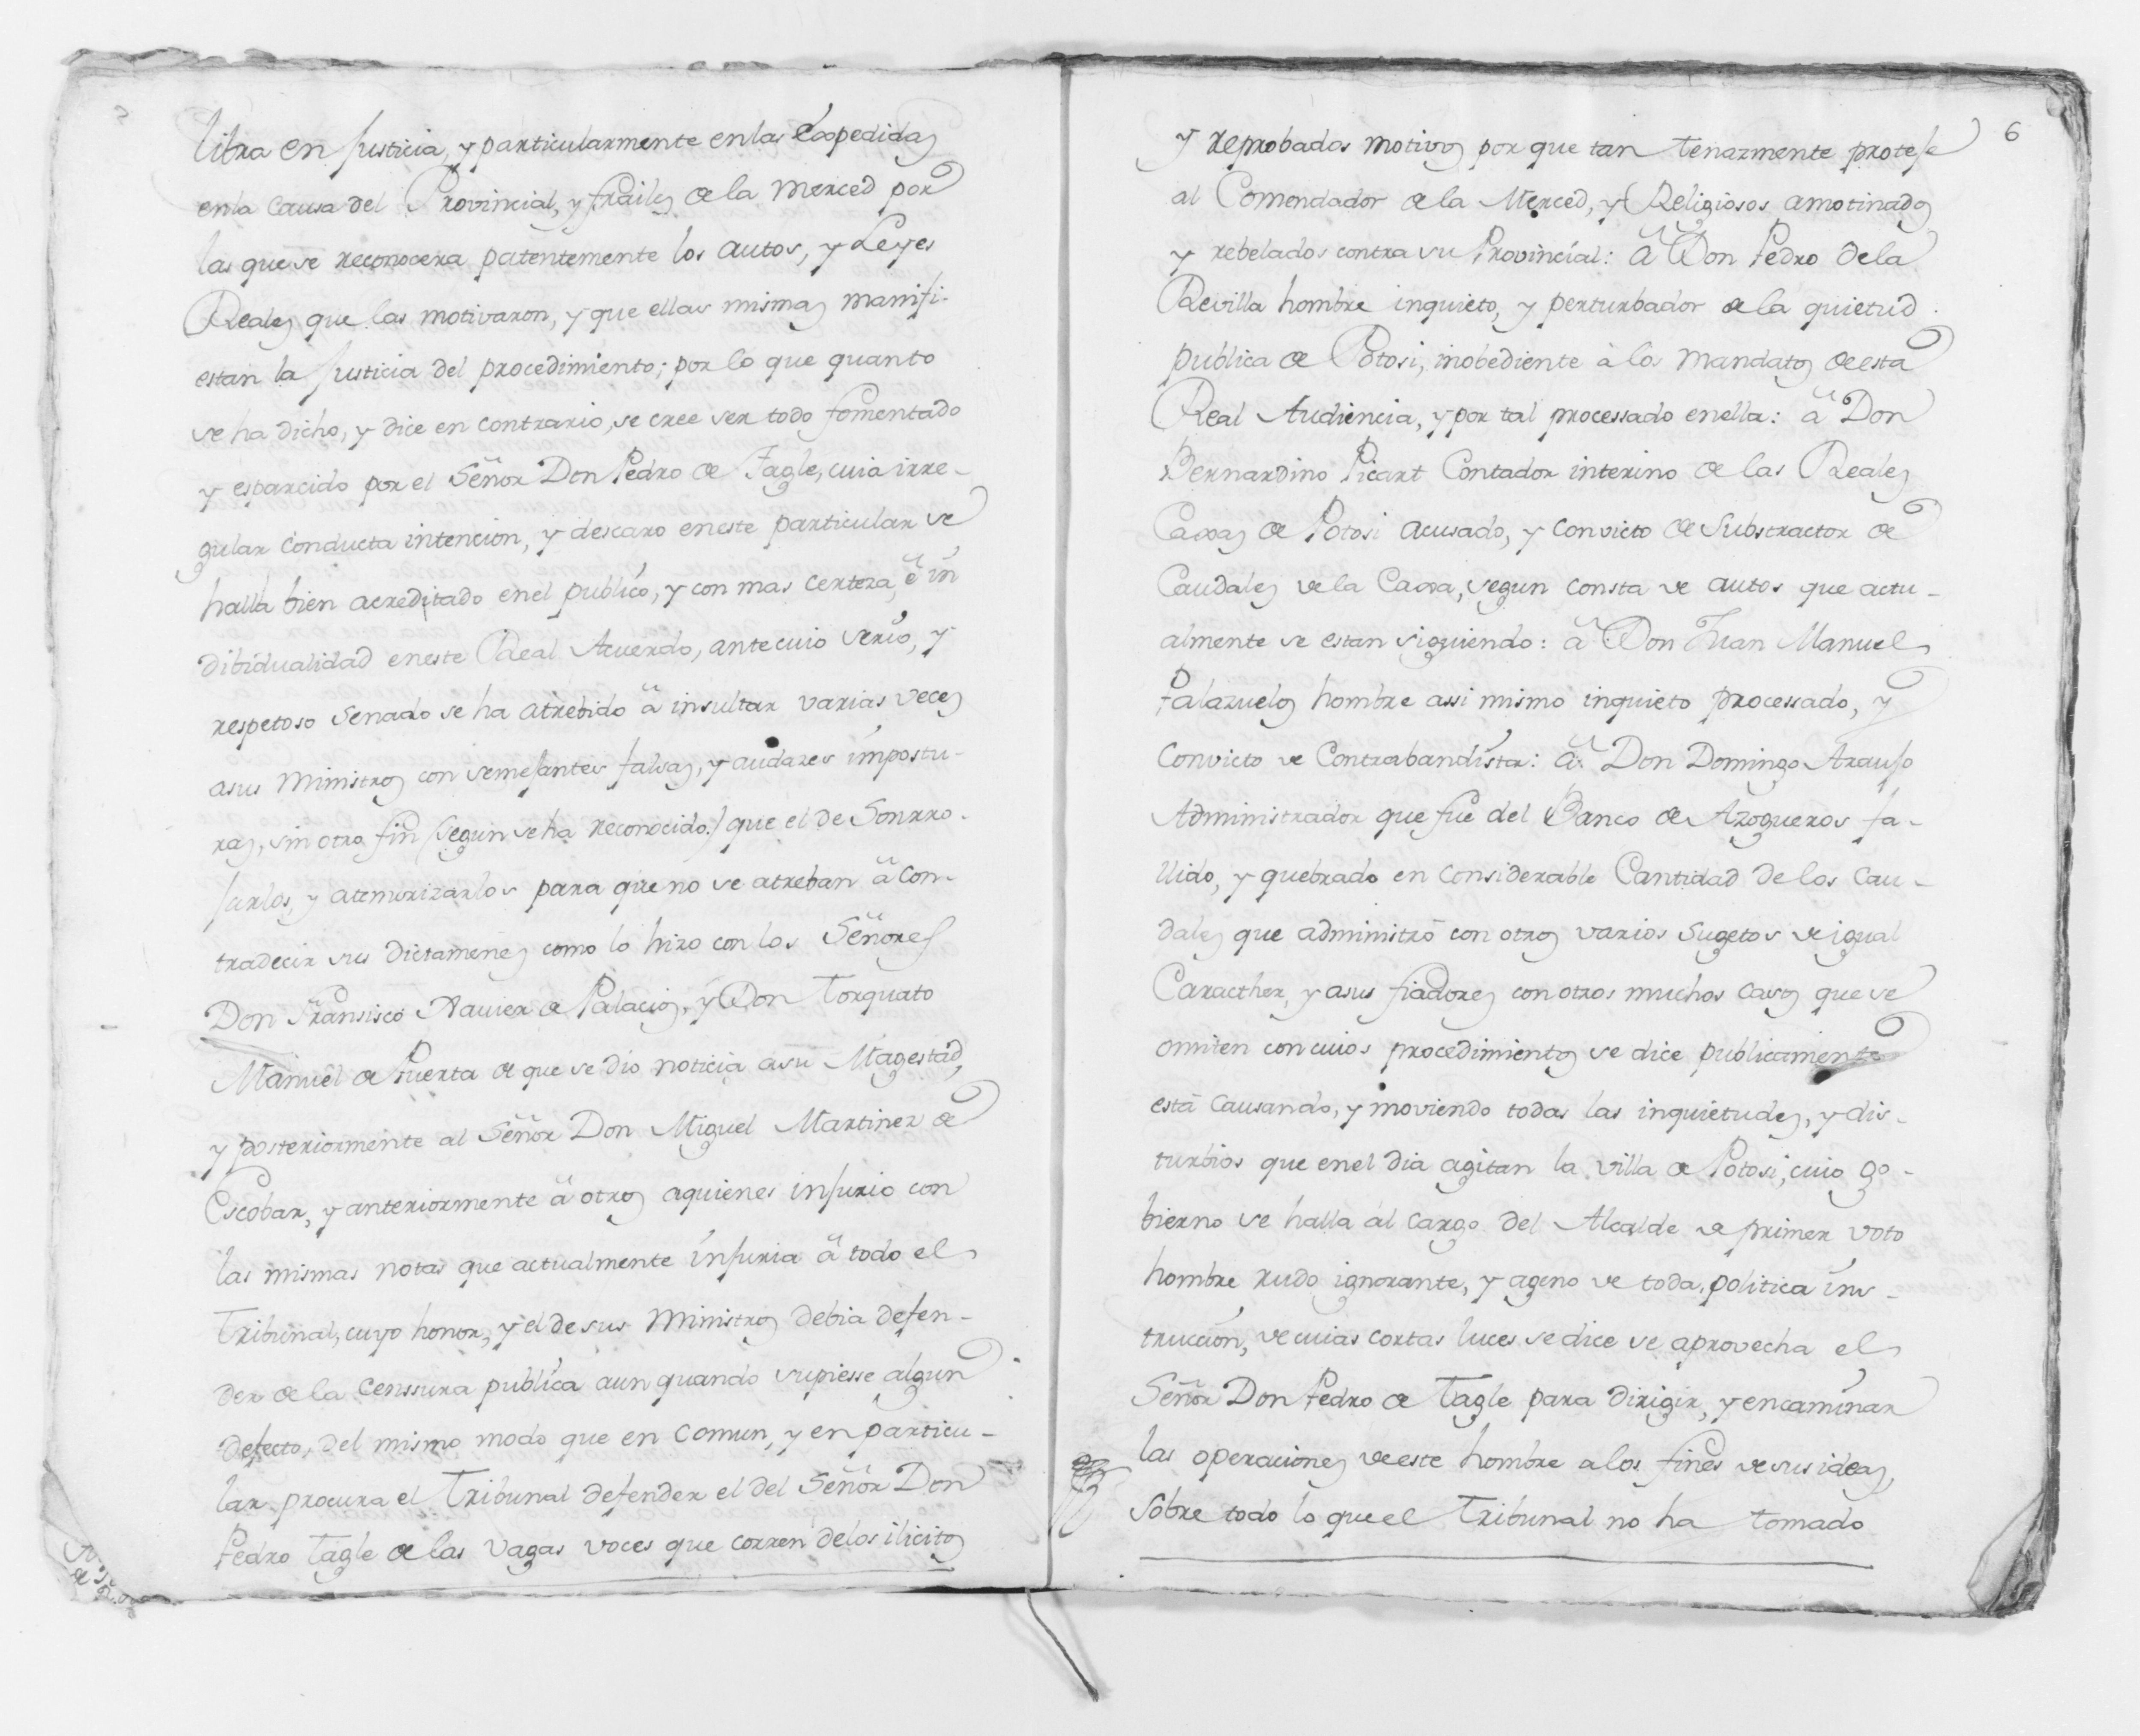 libra en Justicia, y particularmente enlas Expedidas
enla Causa del Provincial, y frailes de la Merced por
las que se reconocera patentemente los autos, y Leyes
Reales que las motivaron, y que ellas mismas manifi-
estan la Justicia del procedimiento; por lo que quanto
se ha dicho, y dice en contrario, se cree ser todo fomentado
y esparcido por el Señor Don Pedro de Tagle, cuia irre-
gular conducta intencion, y descaro eneste particular se
halla bien acreditado enel publico, y con mas certeza, è in
dibidualidad eneste Real Acuerdo, ante cuio serio, y
respetoso Senado se ha atrebido â insultar varias veces
asus Ministros con semejantes falsas, y audazes impostu-
ras, sin otro fin (segun se ha reconocido) que el de Sonrro-
jarlos, y atemorizarlos para que no se atreban â con-
tradecir sus dictamenes como lo hizo con los Señores
Don Fransisco Xavier de Palacios, y Don Torquato
Manuel de Puerta de que se dio noticia asu Magestad,
y posteriormente al Señor Don Miguel Martinez de
Escobar, y anteriormente â otros aquienes injurio con
las mismas notas que actualmente injuria â todo el
Tribunal, cuyo honor, y el de sus Ministros debia defen-
der de la Censsura publica aun quando supiesse algun
defecto, del mismo modo que en comun, y en particu-
lar procura el Tribunal defender el del Señor Don
Pedro Tagle de las vagas voces que corren delos ilicitos
6
y reprobados motivos por que tan tenazmente proteje
al Comendador de la Merced, y Religiosos amotinados
y rebelados contra su Provincial: â Don Pedro dela
Revilla hombre inquieto, y perturbador de la quietud
publica de Potosi, inobediente à los mandatos de esta
Real Audiencia, y por tal processado enella: â Don
Bernardino Picart Contador interino de las Reales
Caxas de Potosi acusado, y convicto de Substractor de
Caudales de la Caxa, segun consta de autos que actu-
almente se estan siguiendo: â Don Juan Manuel
Palazuelos hombre assi mismo inquieto processado, y
Convicto de Contrabandista: â Don Domingo Araujo
Administrador que fue del Banco de Azogueros fa-
llido, y quebrado en considerable Cantidad de los Cau-
dales que administró con otros varios sugetos de igual
Caracther, y asus fiadores con otros muchos casos que se
omiten con cuios procedimientos se dice publicamente
está causando, y moviendo todas las inquietudes, y dis-
turbios que enel dia agitan la villa de Potosi, cuio go-
bierno se halla al cargo del Alcalde de primer voto
hombre rudo ignorante, y ageno de toda politica ins-
truccion, de cuias cortas luces se dice se aprovecha el
Señor Don Pedro de Tagle para dirigir, y encaminar
las operaciones de este hombre alos fines de sus ideas,
Sobre todo lo que el Tribunal no ha tomado